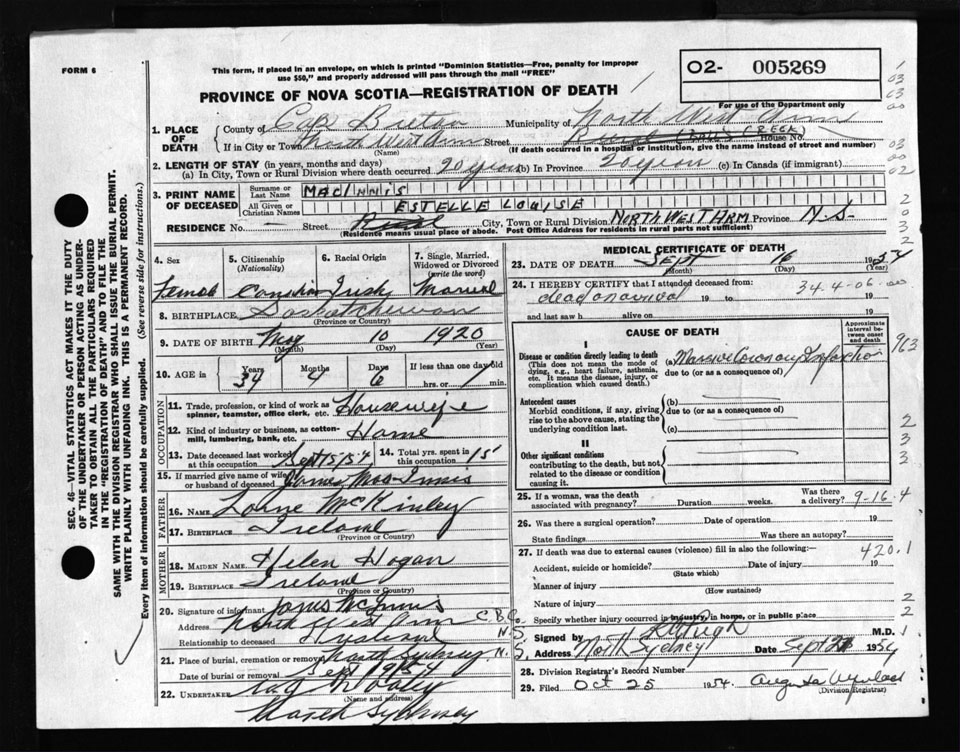 FORM 6
This form, if placed in an envelope, on which is printed "Dominion Statistics—Free, penalty for improper
use $50," and properly addressed will pass through the mail "FREE"
O2- 005269
PROVINCE OF NOVA SCOTIA—REGISTRATION OF DEATH
For use of the Department only
1. PLACE OF DEATH
County of Cape Breton Municipality of North West Arm
If in City or Town North West Arm (Name) Street House No.
(If death occurred in a hospital or institution, give the name instead of street and number)
2. LENGTH OF STAY (in years, months and days)
(a) In City, Town or Rural Division where death occurred 20 years (b) In Province 20 years (c) In Canada (if immigrant)
3. PRINT NAME OF DECEASED
Surname or Last Name MACINNIS
All Given or Christian Names ESTELLE LOUISE
RESIDENCE No. — Street Rural City, Town or Rural Division NORTH WEST ARM Province N-S-
(Residence means usual place of abode. Post Office Address for residents in rural parts not sufficient)
4. Sex Female
5. Citizenship (Nationality) Canadian
6. Racial Origin Irish
7. Single, Married, Widowed or Divorced (write the word) Married
8. BIRTHPLACE Saskatchewan
(Province or Country)
9. DATE OF BIRTH May 10 1920
(Month) (Day) (Year)
10. AGE in Years 34 Months 4 Days 6 If less than one day old hrs. or min.
OCCUPATION
11. Trade, profession, or kind of work as spinner, teamster, office clerk, etc. Housewife
12. Kind of industry or business, as cotton-mill, lumbering, bank, etc. Home
13. Date deceased last worked at this occupation Sept 15/54 14. Total yrs. spent in this occupation 15
15. If married give name of wife or husband of deceased James MacInnis
FATHER
16. NAME McKinley
17. BIRTHPLACE Ireland
(Province or Country)
MOTHER
18. MAIDEN NAME Helen Hogan
19. BIRTHPLACE Ireland
(Province or Country)
20. Signature of informant James McInnis
Address North West Arm C.B. Co. N.S.
Relationship to deceased Husband
21. Place of burial, cremation or removal North Sydney N.S.
Date of burial or removal Sept 19/54
22. UNDERTAKER
(Name and address)
North Sydney
MEDICAL CERTIFICATE OF DEATH
23. DATE OF DEATH Sept 16 1954
(Month) (Day) (Year)
24. I HEREBY CERTIFY that I attended deceased from:
dead on arrival 19 to 19
and last saw h alive on 19
34.4-06
CAUSE OF DEATH
Approximate interval between onset and death
I
Disease or condition directly leading to death
(This does not mean the mode of dying, e.g., heart failure, asthenia, etc. It means the disease, injury, or complication which caused death.)
(a) Massive Coronary Infarction
due to (or as a consequence of)
Antecedent causes
Morbid conditions, if any, giving rise to the above cause, stating the underlying condition last.
(b)
due to (or as a consequence of)
(c)
II
Other significant conditions
contributing to the death, but not related to the disease or condition causing it.
25. If a woman, was the death associated with pregnancy? Duration weeks. Was there a delivery?
9-16-4
26. Was there a surgical operation? Date of operation 19
State findings Was there an autopsy?
27. If death was due to external causes (violence) fill in also the following:—
420.1
Accident, suicide or homicide? Date of injury 19
(State which)
Manner of injury
(How sustained)
Nature of injury
Specify whether injury occurred in industry, in home, or in public place
Signed by M.D.
Address North Sydney Date Sept 1954
28. Division Registrar's Record Number
29. Filed Oct 25 1954. Augusta
(Division Registrar)
SEC. 46—VITAL STATISTICS ACT MAKES IT THE DUTY
OF THE UNDERTAKER OR PERSON ACTING AS UNDER-
TAKER TO OBTAIN ALL THE PARTICULARS REQUIRED
IN THE "REGISTRATION OF DEATH" AND TO FILE THE
SAME WITH THE DIVISION REGISTRAR WHO SHALL ISSUE THE BURIAL PERMIT.
WRITE PLAINLY WITH UNFADING INK. THIS IS A PERMANENT RECORD.
Every item of information should be carefully supplied. (See reverse side for instructions.)